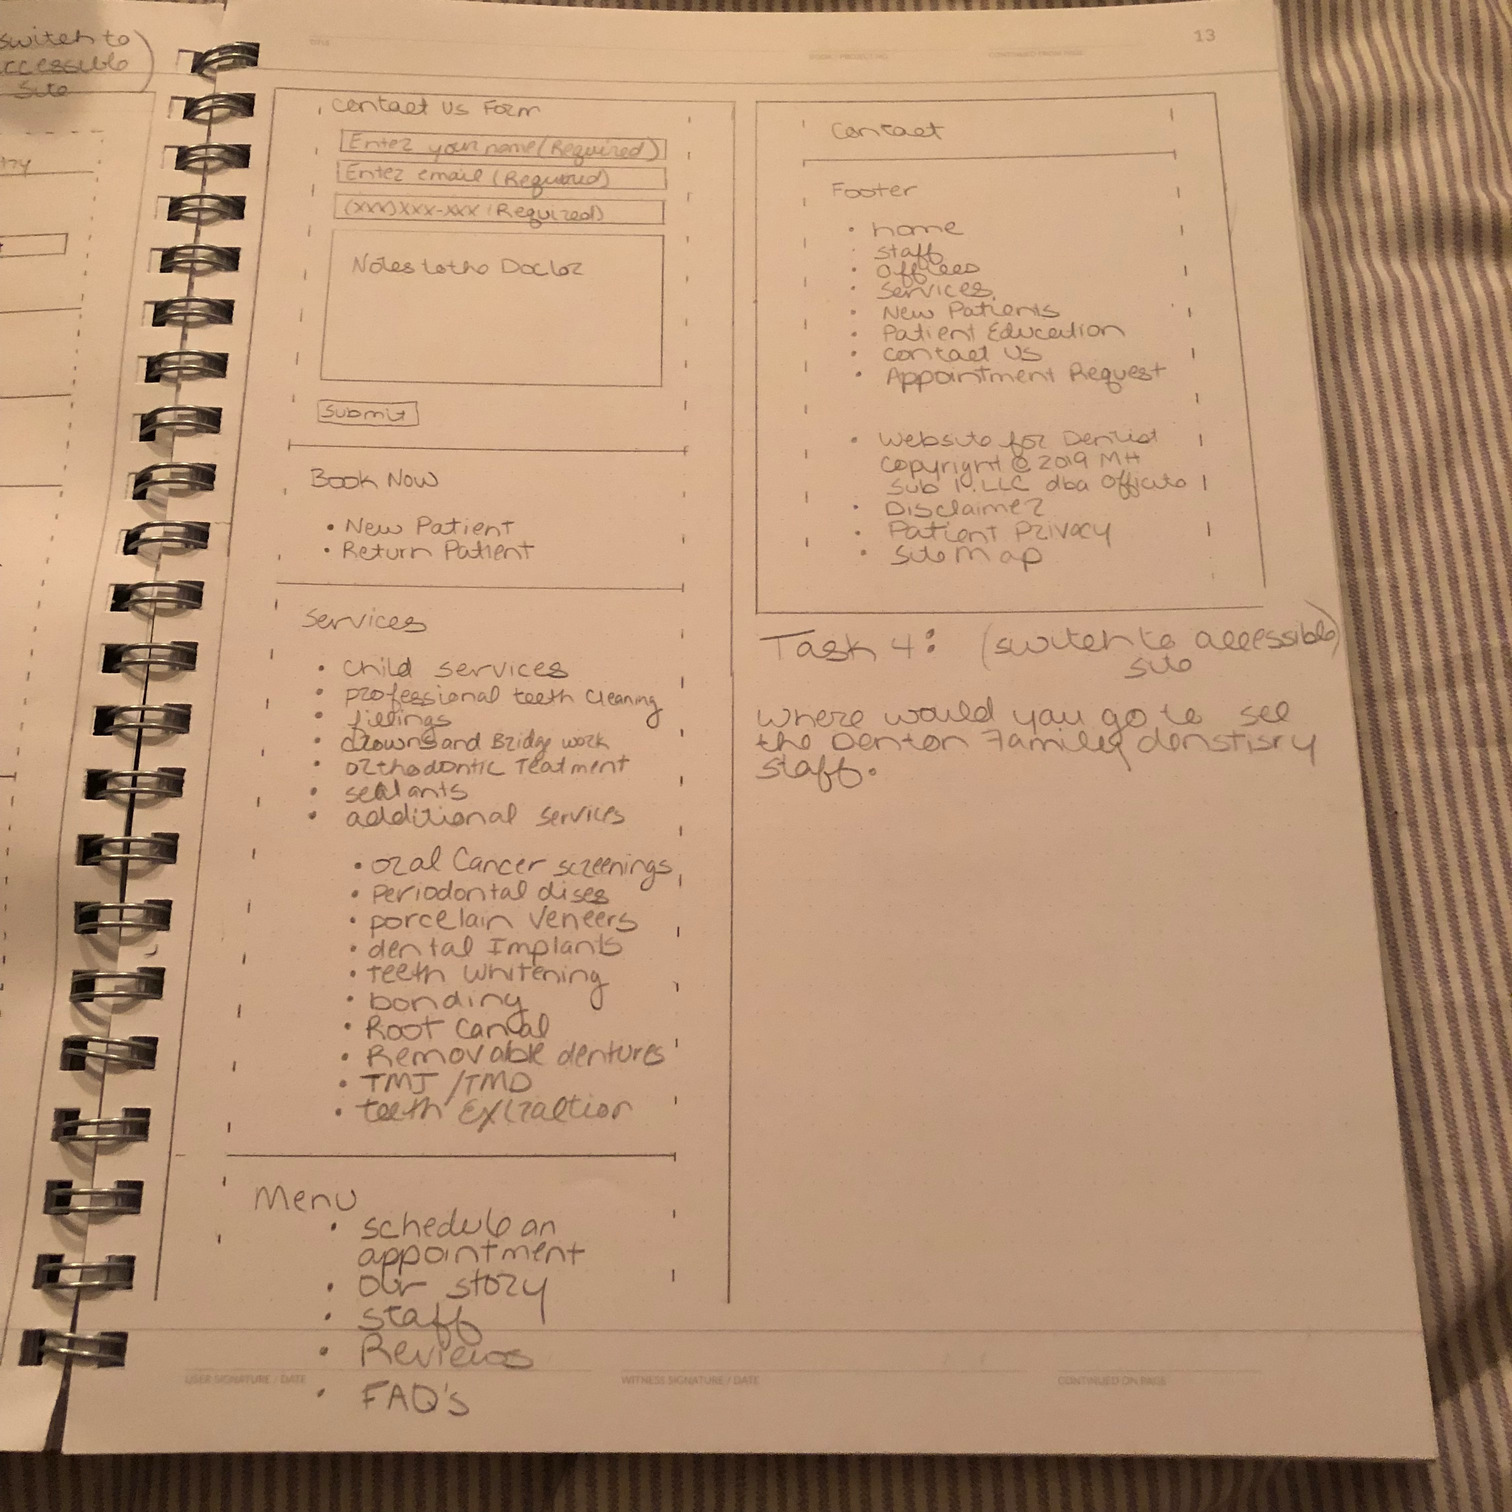 switch to
accessible
site
13
TITLE
BOOK / PROJECT NO.
CONTINUED FROM PAGE
Contact Us Form
Enter your name (Required)
Enter email (Required)
(xxx)xxx-xxx (Required)
Notes to the Doctor
Submit
Book Now
• New Patient
• Return Patient
Services
• Child services
• professional teeth cleaning
• fillings
• crowns and Bridge work
• orthodontic Teatment
• sealants
• additional services
• oral Cancer screenings
• periodontal dises
• porcelain veneers
• dental Implants
• teeth whitening
• bonding
• Root Canal
• Removable dentures
• TMJ / TMD
• teeth Extraction
Menu
• schedule an
appointment
• our story
• staff
• Reviews
• FAQ's
Contact
Footer
• home
• staff
• offices
• services
• New Patients
• Patient Education
• contact Us
• Appointment Request
• Website for Dentist
Copyright © 2019 MH
Sub 1, LLC dba Officite
• Disclaimer
• Patient Privacy
• Site Map
Task 4: (switch to accessible)
site
where would you go to see
the Denton Family denstisry
staff.
USER SIGNATURE / DATE
WITNESS SIGNATURE / DATE
CONTINUED ON PAGE